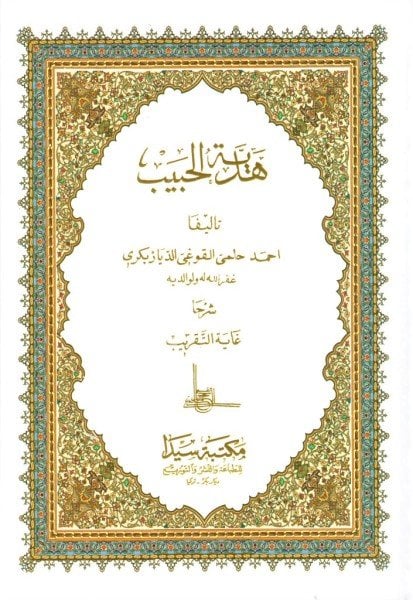 هدية الحبيب
تأليفا
احمد حلمي القوغي الديار بكري
غفر الله له ولوالديه
شرحا
غاية التقريب
مكتبة سيدا
للطباعة والنشر والتوزيع
ديار بكر - تركيا